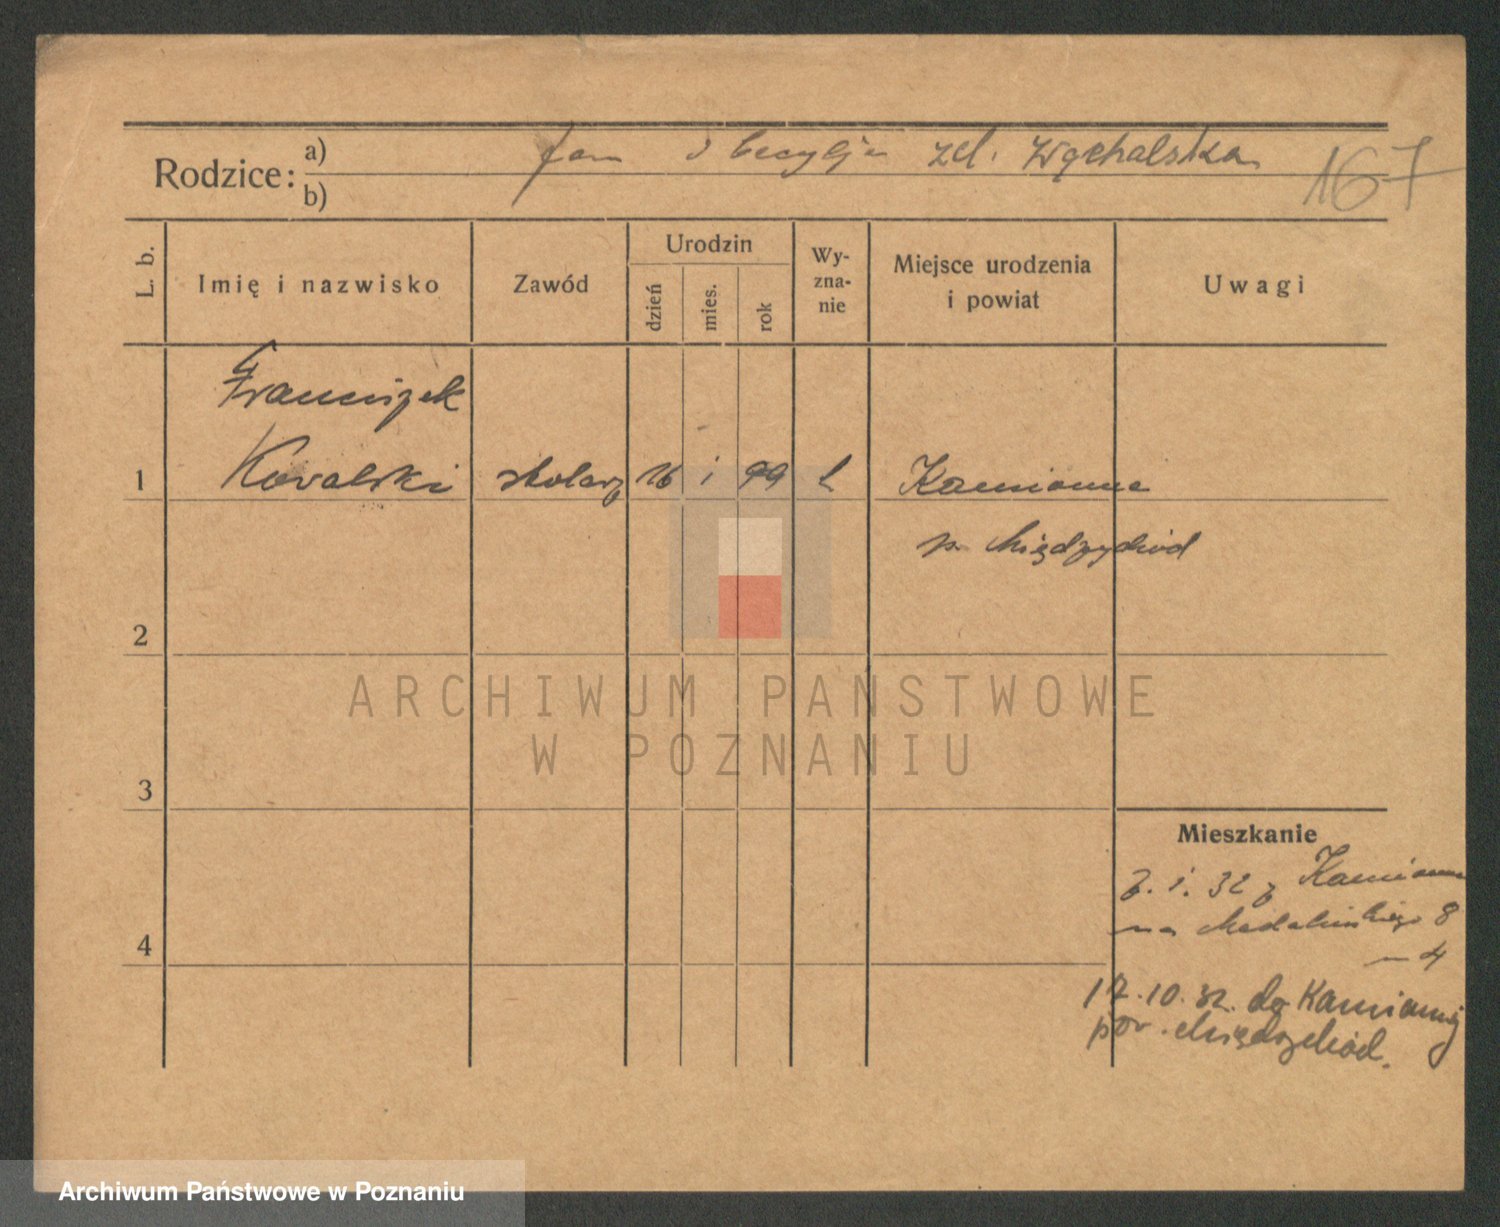 Rodzice: a) Jan i Cecylja zd. Wąchalska 167
b)
L. b. Imię i nazwisko Zawód Urodzin Wy-zna-nie Miejsce urodzenia i powiat Uwagi
dzień mies. rok
Franciszek
1 Kowalski stolarz 26 i 99 k Kamionna
p. Międzychód
2
ARCHIWUM PAŃSTWOWE
W POZNANIU
3
Mieszkanie
7. i. 32 z Kamionna
na Madalińskiego 8
4
m 4
17.10.32. do Kamionnej
pow. Międzychód.
Archiwum Państwowe w Poznaniu